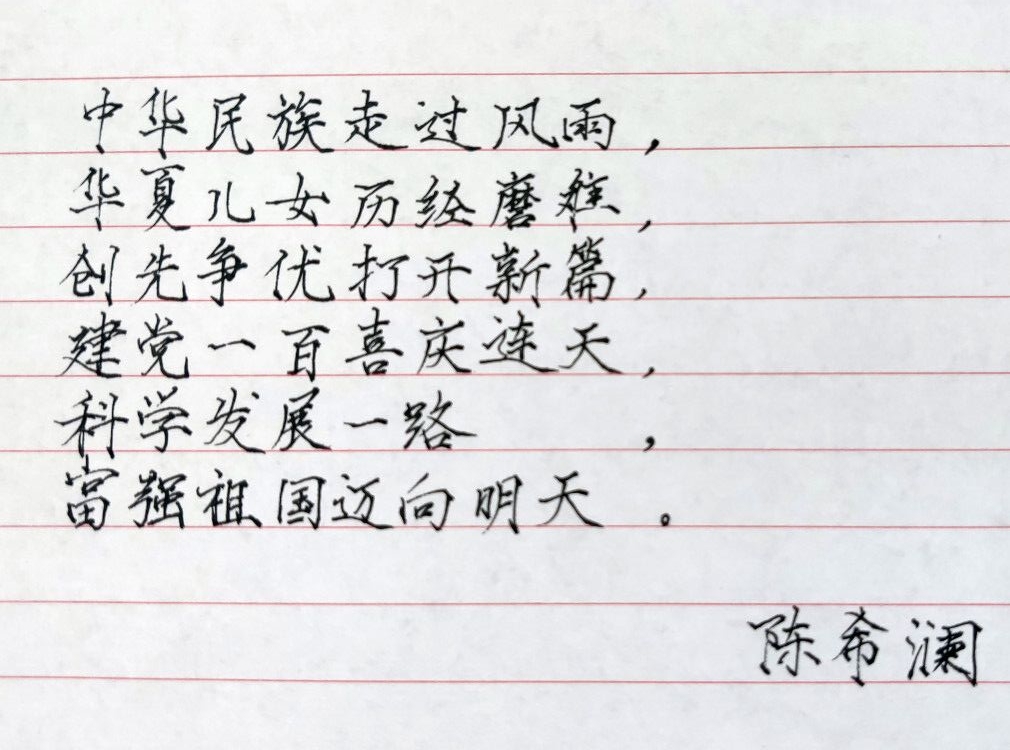 中华民族走过风雨，
华夏儿女历经磨难，
创先争优打开新篇，
建党一百喜庆连天，
科学发展一路，
富强祖国迈向明天。
陈希澜